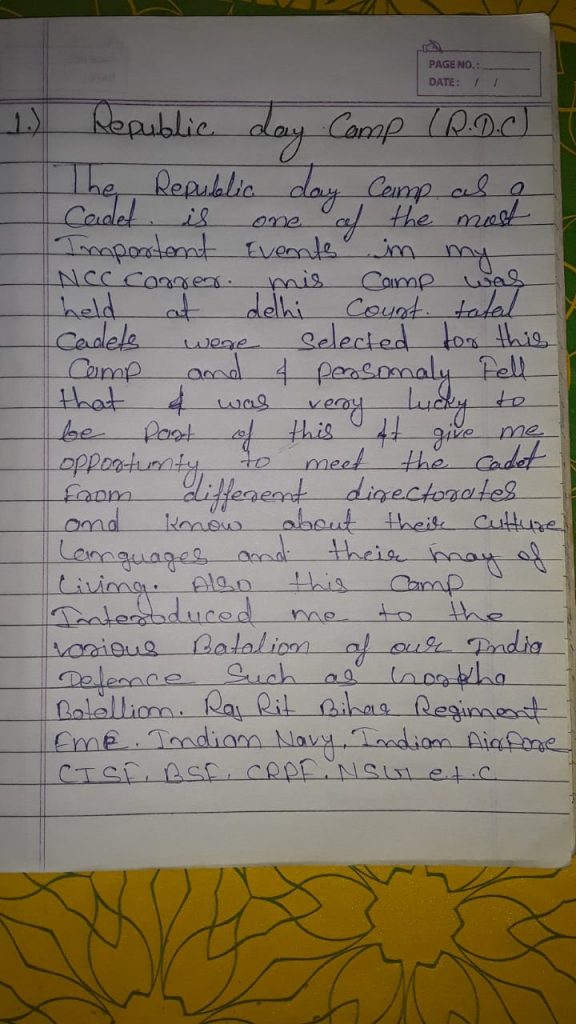 PAGE NO.:
DATE: / /
1.) Republic day Camp (R.D.C)
The Republic day Camp as a
Cadet is one of the most
Important Events in my
NCC Correr. mis Camp was
held at delhi Court. total
Cadets were Selected for this
Camp and I personaly Fell
that I was very lucky to
be Part of this It give me
opportunity to meet the Cadet
From different directorates
and know about their Culture
Languages and their may of
Living. Also this Camp
Interoduced me to the
various Batalion of our India
Defence Such as Gorkha
Batellion. Raj Rif Bihar Regiment
EME. Indian Navy, Indian AirFore
CISF, BSF, CRPF, NSG e.t.c